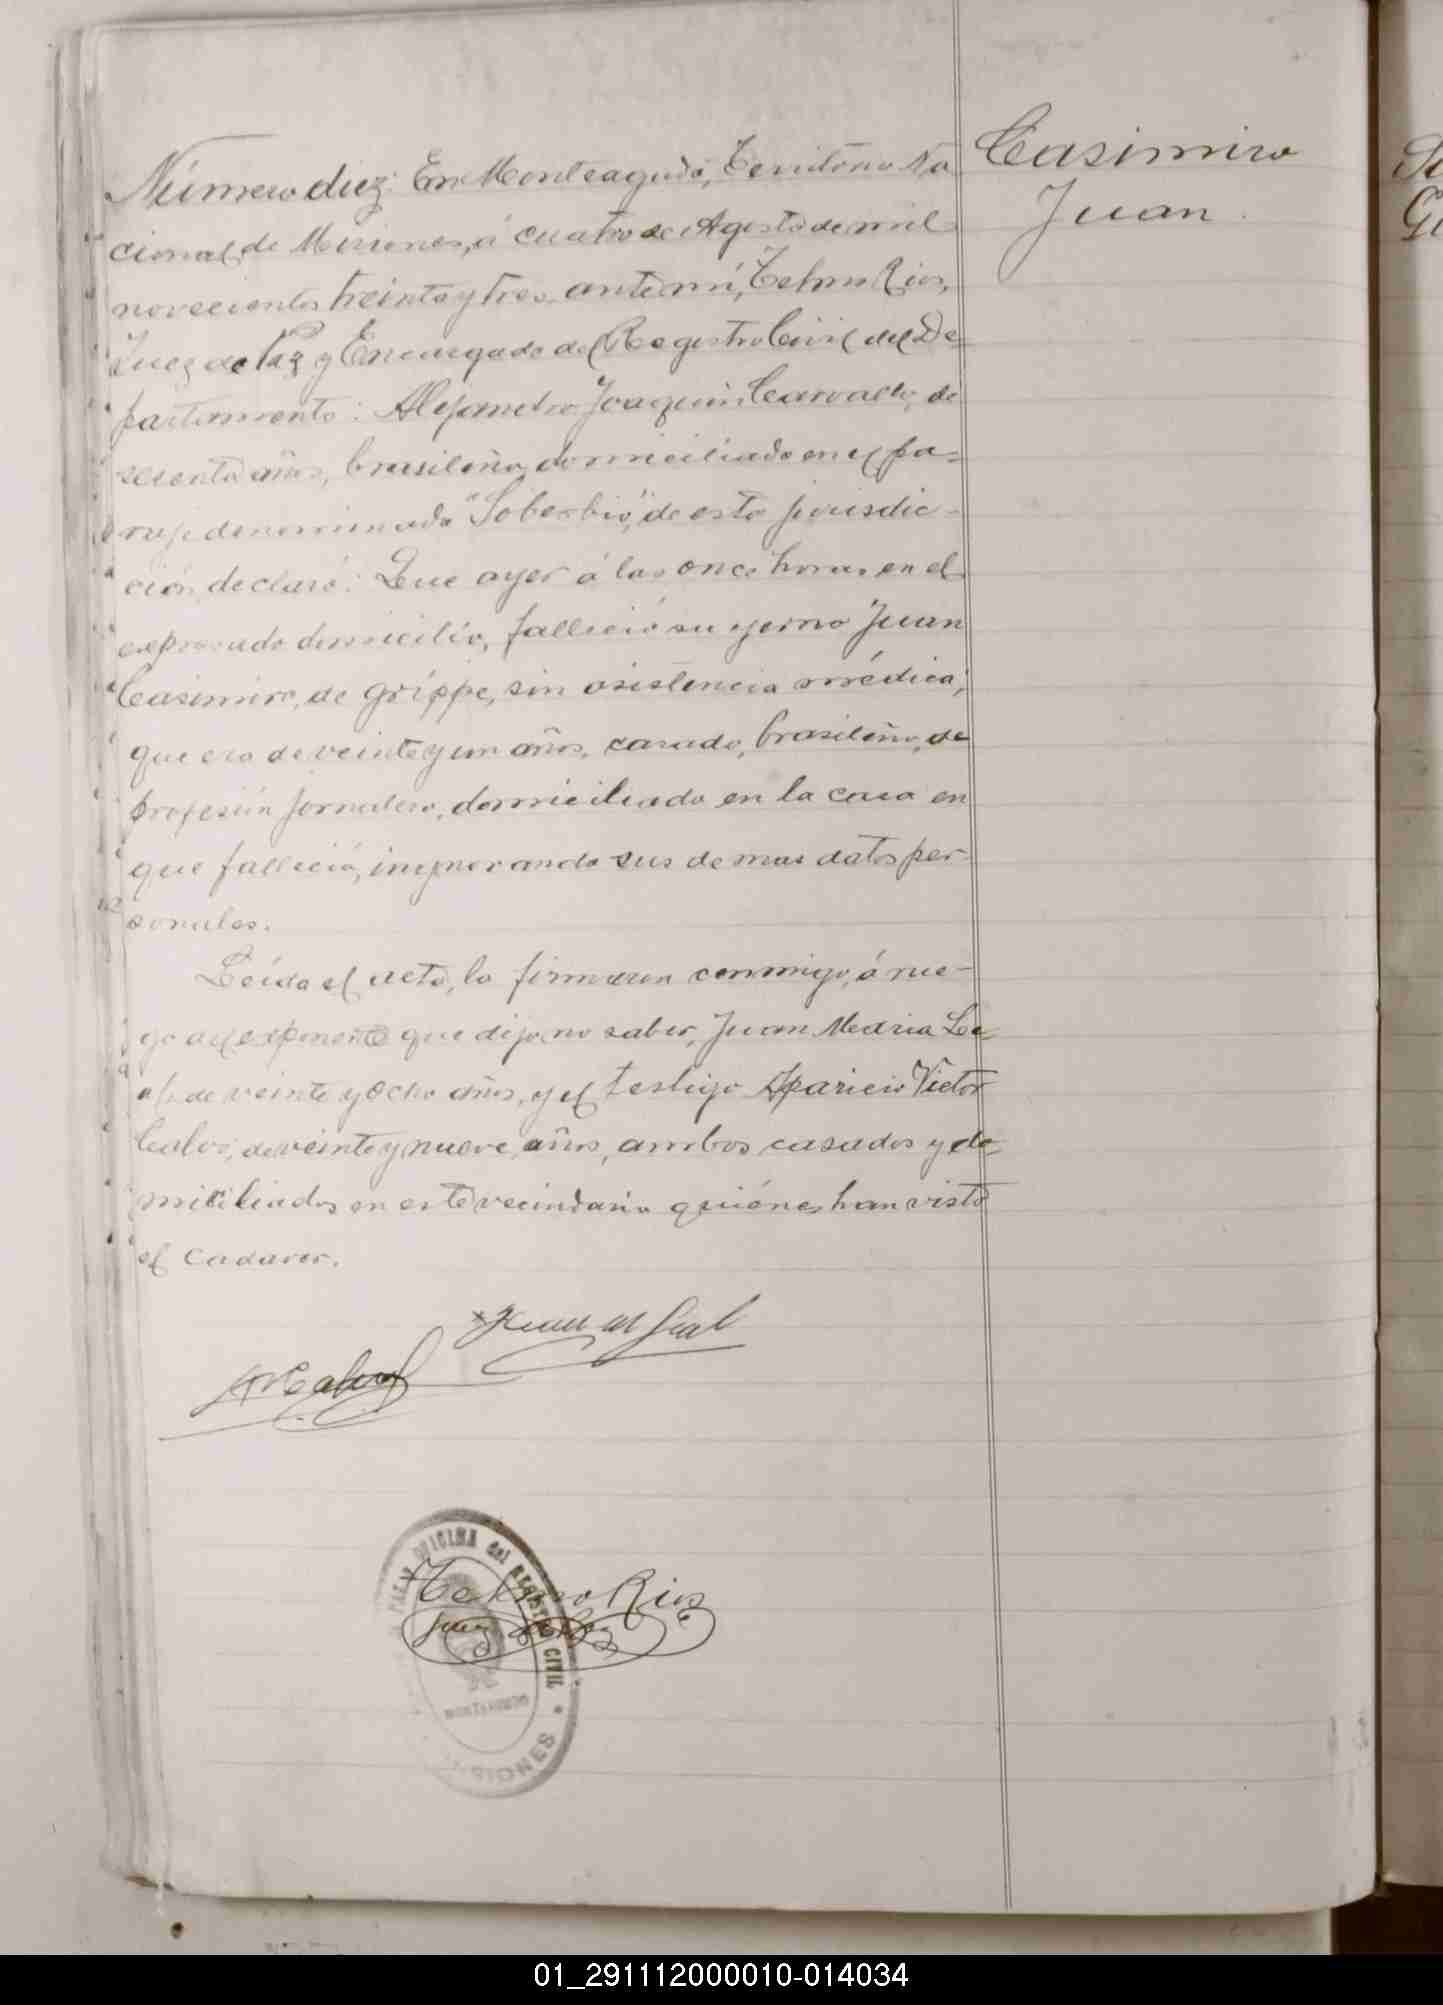 Casimiro
Juan
Número diez: En Monteagudo, Territorio Na
cional de Misiones, á cuatro de Agosto de mil
novecientos treinta y tres, ante mí, Telmo Rios,
Juez de Paz y Encargado del Registro Civil del De-
partamento: Alejandro Joaquin Carvallo, de
sesenta años, brasileño, domiciliado en el pa-
raje denominado "Soberbio", de esta jurisdic-
ción, declaró: Que ayer á las once horas en el
expresado domicilio, falleció su yerno Juan
Casimiro, de grippe, sin asistencia médica;
que era de veinte y un años, casado, brasileño, de
profesión jornalero, domiciliado en la casa en
que falleció, ingnorando sus demas datos per-
sonales.
Leída el acta, la firmaron conmigo, á rue-
go del exponente que dijo no saber, Juan Maria Le-
al, de veinte y ocho años, y el testigo Aparicio Victor
Calvo, de veinte y nueve años, ambos casados y do-
miciliados en este vecindario quiénes han visto
el cadaver.
Juan M Leal
A V Calvo
Telmo Rios
Juez de Paz
PAZ Y OFICINA del REGISTRO CIVIL
MONTEAGUDO
MISIONES
01_291112000010-014034